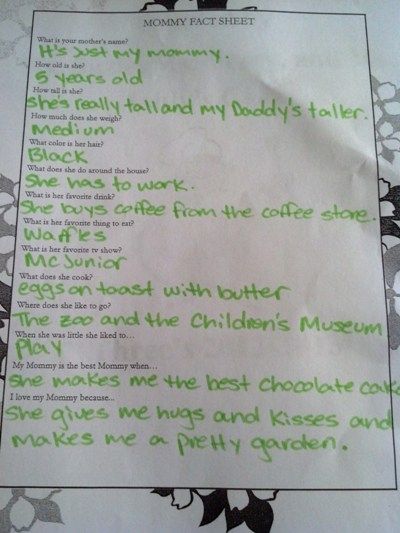 MOMMY FACT SHEET
What is your mother's name?
It's Just my mommy.
How old is she?
5 years old
How tall is she?
she's really tall and my Daddy's taller.
How much does she weigh?
Medium
What color is her hair?
Black
What does she do around the house?
She has to work.
What is her favorite drink?
She buys coffee from the coffee store.
What is her favorite thing to eat?
Waffles
What is her favorite tv show?
Mc Junior
What does she cook?
eggs on toast with butter
Where does she like to go?
The Zoo and the Children's Museum
When she was little she liked to…
Play
My Mommy is the best Mommy when…
She makes me the best Chocolate cake
I love my Mommy because...
She gives me hugs and kisses and
makes me a pretty garden.